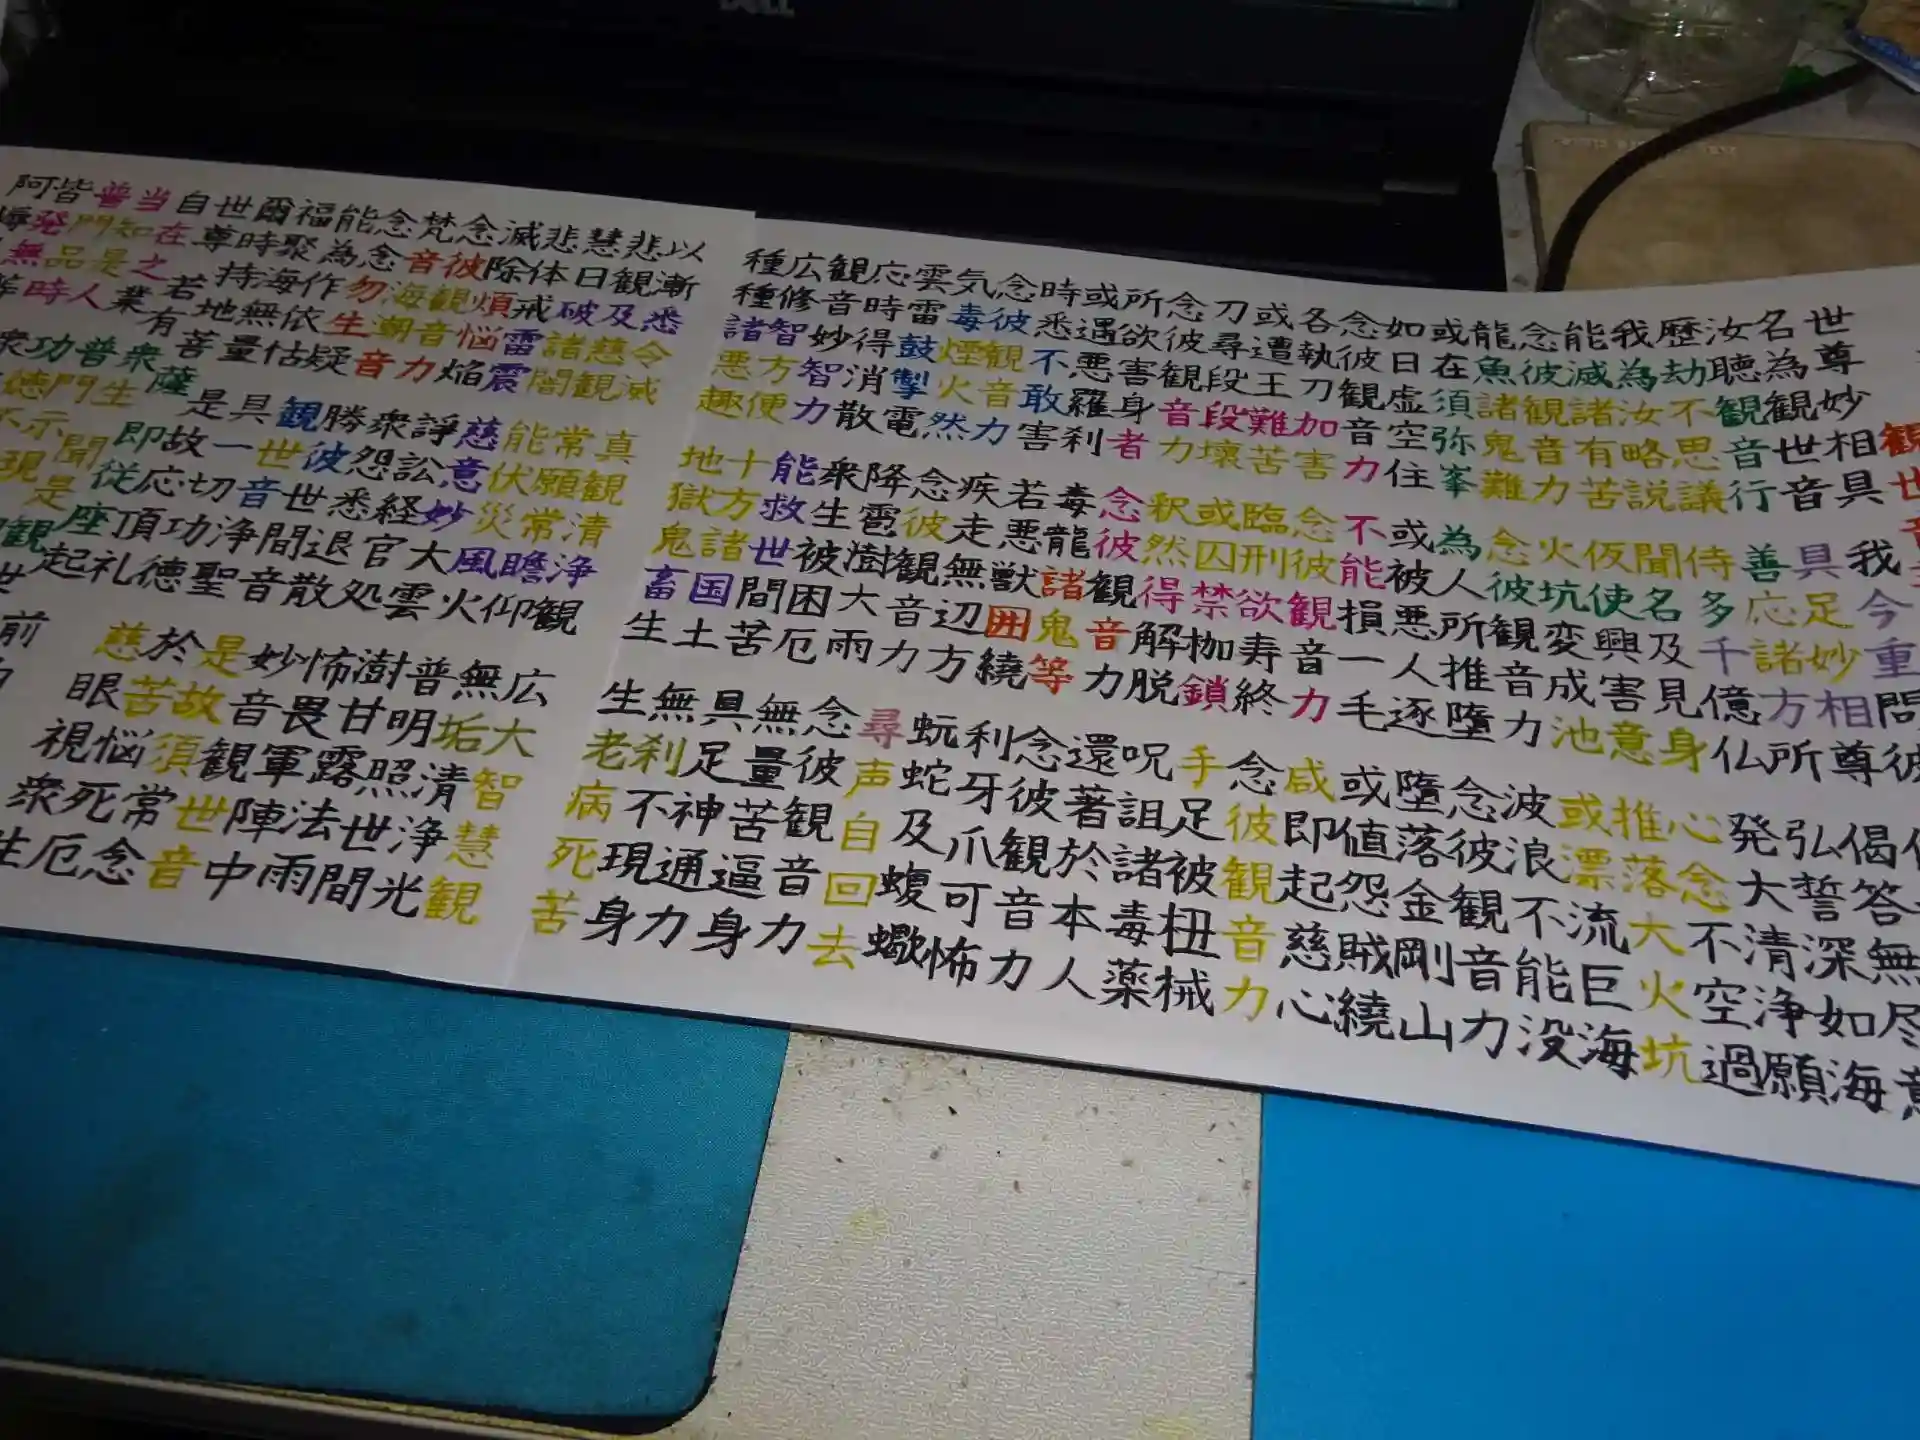 世尊妙相具 我今重問彼
名為観世音 具足妙相尊 偈答無尽意
聴汝観音行 善応諸方所 弘誓深如海
歴劫不思議 侍多千億仏 発大清浄願
我為汝略説 聞名及見身 心念不空過
能滅諸有苦 仮使興害意 推落大火坑
念彼観音力 火坑変成池 或漂流巨海
龍魚諸鬼難 念彼観音力 波浪不能没
或在須弥峯 為人所推堕 念彼観音力
如日虚空住 或被悪人逐 堕落金剛山
念彼観音力 不能損一毛 或値怨賊繞
各執刀加害 念彼観音力 咸即起慈心
或遭王難苦 臨刑欲寿終 念彼観音力
刀尋段段壊 或囚禁枷鎖 手足被杻械
念彼観音力 釈然得解脱 呪詛諸毒薬
所欲害身者 念彼観音力 還著於本人
或遇悪羅刹 毒龍諸鬼等 念彼観音力
時悉不敢害 若悪獣囲繞 利牙爪可怖
念彼観音力 疾走無辺方 蚖蛇及蝮蠍
気毒煙火然 念彼観音力 尋声自回去
雲雷鼓掣電 降雹澍大雨 念彼観音力
応時得消散 衆生被困厄 無量苦逼身
観音妙智力 能救世間苦 具足神通力
広修智方便 十方諸国土 無刹不現身
種種諸悪趣 地獄鬼畜生 生老病死苦
以漸悉令滅 真観清浄観 広大智慧観
悲観及慈観 常願常瞻仰 無垢清浄光
慧日破諸闇 能伏災風火 普明照世間
悲体戒雷震 慈意妙大雲 澍甘露法雨
滅除煩悩焔 諍訟経官処 怖畏軍陣中
念彼観音力 衆怨悉退散 妙音観世音
梵音海潮音 勝彼世間音 是故須常念
念念勿生疑 観世音浄聖 於苦悩死厄
能為作依怙 具一切功徳 慈眼視衆生
福聚海無量 是故応頂礼
爾時持地菩薩 即従座起 前
世尊若有衆生 聞是観世
自在之業 普門示現
当知是人 功徳不
普門品時衆
皆発無等
DELL